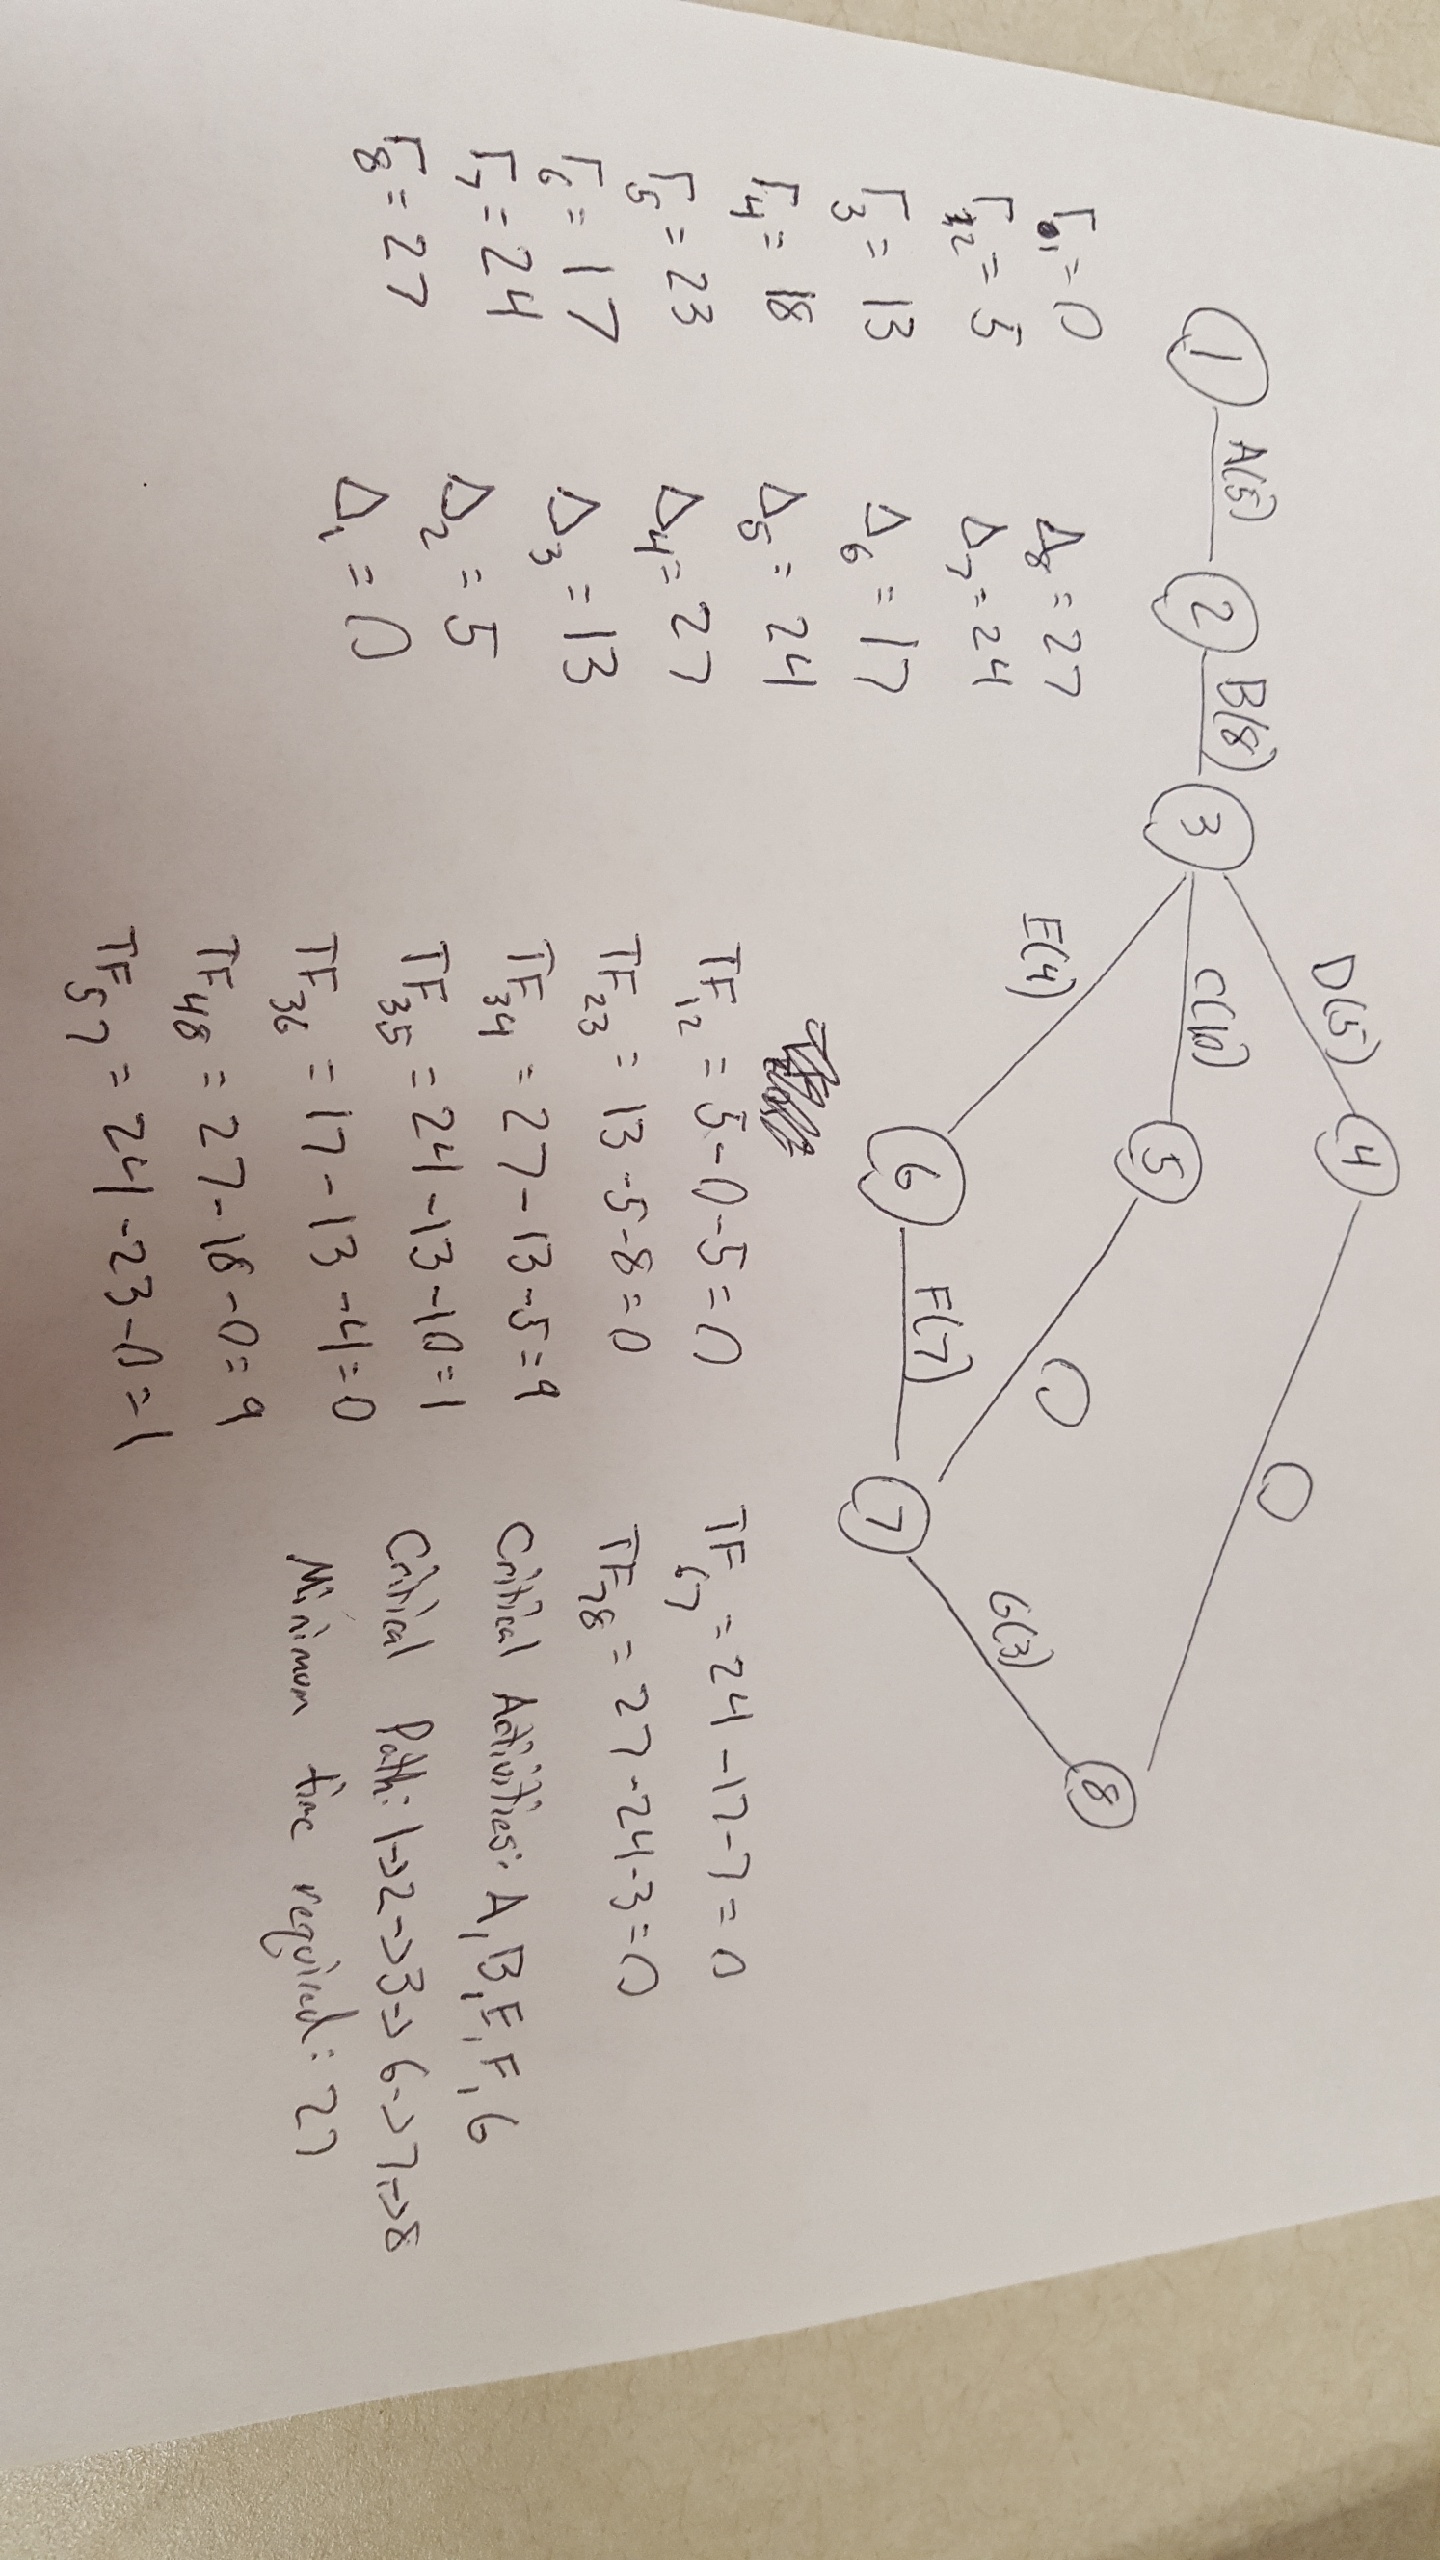 D(5)
4
0
1 A(5) 2 B(8) 3 C(10) 5
8
E(4)
0
G(3)
6 F(7) 7
□₁ = 0
□₂ = 5
□₃ = 13
□₄ = 18
□₅ = 23
□₆ = 17
□₇ = 24
□₈ = 27
Δ₈ = 27
Δ₇ = 24
Δ₆ = 17
Δ₅ = 24
Δ₄ = 27
Δ₃ = 13
Δ₂ = 5
Δ₁ = 0
TF₁₂ = 5-0-5=0
TF₂₃ = 13-5-8=0
TF₃₄ = 27-13-5=9
TF₃₅ = 24-13-10=1
TF₃₆ = 17-13-4=0
TF₄₈ = 27-18-0=9
TF₅₇ = 24-23-0=1
TF₆₇ = 24-17-7=0
TF₇₈ = 27-24-3=0
Critical Activities: A, B, E, F, G
Critical Path: 1->2->3->6->7->8
Minimum time required: 27